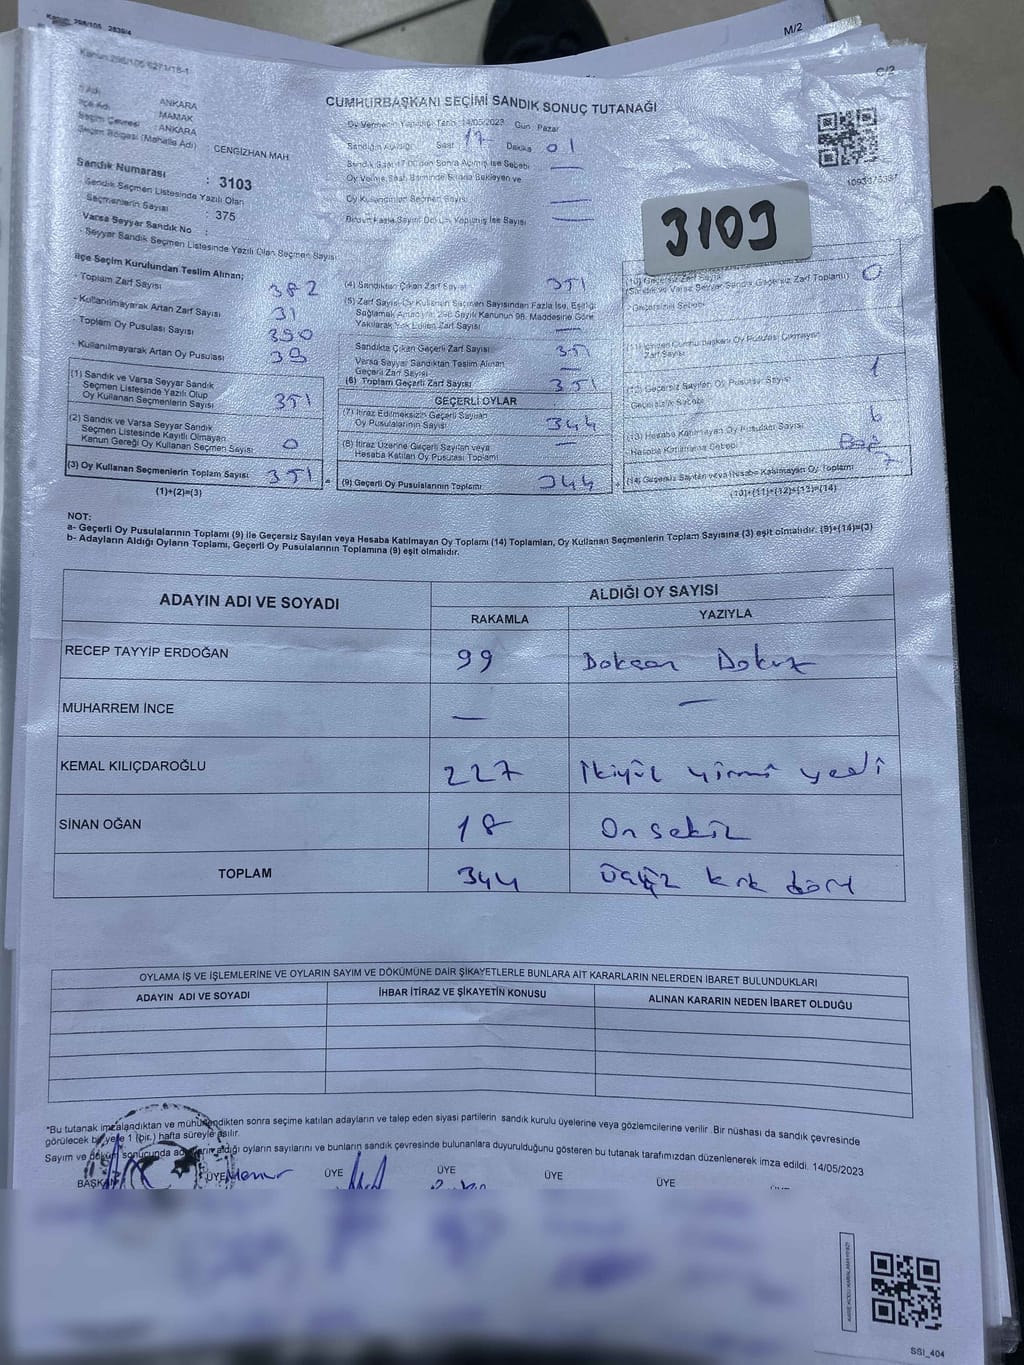 Kanun 298/105 2839/4
M/2
Kanun 298/105 6271/18-1
C/2
CUMHURBAŞKANI SEÇİMİ SANDIK SONUÇ TUTANAĞI
İl Adı ANKARA
İlçe Adı MAMAK
Seçim Çevresi : ANKARA
Seçim Bölgesi (Mahalle Adı) CENGİZHAN MAH
Sandık Numarası : 3103
Sandık Seçmen Listesinde Yazılı Olan
Seçmenlerin Sayısı : 375
Varsa Seyyar Sandık No :
- Seyyar Sandık Seçmen Listesinde Yazılı Olan Seçmen Sayısı
Oy Vermenin Yapıldığı Tarih 14/05/2023 Gün Pazar
Saat 17 Dakika 01
Sandık Saat 17:00'den Sonra Açılmış İse Sebebi —
Oy Kullandırılan Seçmen Sayısı —
3103
İlçe Seçim Kurulundan Teslim Alınan;
- Toplam Zarf Sayısı 382
- Kullanılmayarak Artan Zarf Sayısı 31
- Toplam Oy Pusulası Sayısı 390
- Kullanılmayarak Artan Oy Pusulası 39
(1) Sandık ve Varsa Seyyar Sandık
Seçmen Listesinde Yazılı Olup
Oy Kullanan Seçmenlerin Sayısı 351
(2) Sandık ve Varsa Seyyar Sandık
Seçmen Listesinde Kayıtlı Olmayan
Kanun Gereği Oy Kullanan Seçmen Sayısı 0
(3) Oy Kullanan Seçmenlerin Toplam Sayısı 351
(1)+(2)=(3)
(4) Sandıktan Çıkan Zarf Sayısı 351
(5) Zarf Sayısı Oy Kullanan Seçmen Sayısından Fazla İse, Eşitliği
Sağlamak Amacıyla 298 Sayılı Kanunun 98. Maddesine Göre
Yakılarak Yok Edilen Zarf Sayısı —
Sandıkta Çıkan Geçerli Zarf Sayısı 351
Varsa Seyyar Sandıktan Teslim Alınan
Geçerli Zarf Sayısı —
(6) Toplam Geçerli Zarf Sayısı 351
GEÇERLİ OYLAR
(7) İtiraz Edilmeksizin Geçerli Sayılan
Oy Pusulalarının Sayısı 344
(8) İtiraz Üzerine Geçerli Sayılan veya
Hesaba Katılan Oy Pusulası Toplamı —
(9) Geçerli Oy Pusulalarının Toplamı 344
(10) Geçersiz Zarf Sayısı
(Sandık ve Varsa Seyyar Sandık Geçersiz Zarf Toplamı) 0
Zarf Sayısı
(12) Geçersiz Sayılan Oy Pusulası Sayısı 1
(13) Hesaba Katılmayan Oy Pusulası Sayısı 6
Hesaba Katılmama Sebebi
(14) Geçersiz Sayılan veya Hesaba Katılmayan Oy Toplamı 7
(10)+(11)+(12)+(13)=(14)
NOT:
a- Geçerli Oy Pusulaları Toplamı (9) ile Geçersiz Sayılan veya Hesaba Katılmayan Oy Toplamı (14) Toplamları, Oy Kullanan Seçmenlerin Toplam Sayısına (3) eşit olmalıdır. (9)+(14)=(3)
b- Adayların Aldığı Oyların Toplamı, Geçerli Oy Pusulalarının Toplamına (9) eşit olmalıdır.
ADAYIN ADI VE SOYADI ALDIĞI OY SAYISI
RAKAMLA YAZIYLA
RECEP TAYYİP ERDOĞAN 99 Doksan Dokuz
MUHARREM İNCE — —
KEMAL KILIÇDAROĞLU 227 İkiyüz yirmi yedi
SİNAN OĞAN 18 On sekiz
TOPLAM 344 Üçyüz kırk dört
OYLAMA İŞ VE İŞLEMLERİNE VE OYLARIN SAYIM VE DÖKÜMÜNE DAİR ŞİKAYETLERLE BUNLARA AİT KARARLARIN NELERDEN İBARET BULUNDUKLARI
ADAYIN ADI VE SOYADI İHBAR İTİRAZ VE ŞİKAYETİN KONUSU ALINAN KARARIN NEDEN İBARET OLDUĞU
*Bu tutanak imzalandıktan ve mühürlendikten sonra seçime katılan adayların ve talep eden siyasi partilerin sandık kurulu üyelerine veya gözlemcilerine verilir. Bir nüshası da sandık çevresinde
görülecek bir yere 1 (bir) hafta süreyle asılır.
Sayım ve döküm sonucunda adayların aldığı oyların sayılarını ve bunların sandık çevresinde bulunanlara duyurulduğunu gösteren bu tutanak tarafımızdan düzenlenerek imza edildi. 14/05/2023
BAŞKAN ÜYE ÜYE ÜYE ÜYE ÜYE
SSI_404